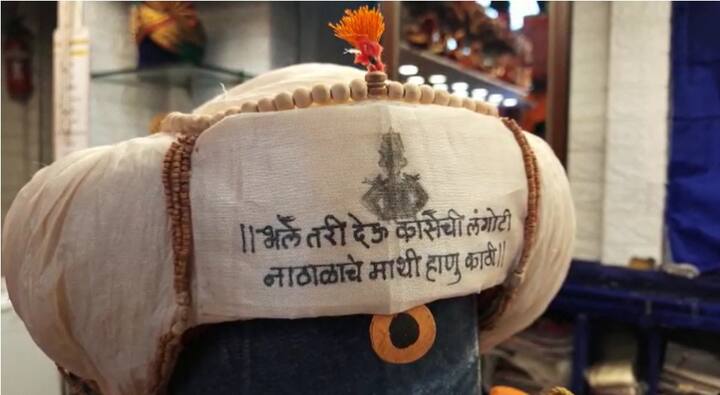 ||भले तरी देऊ कासेची लंगोटी
नाठाळाचे माथी हाणु काठी||